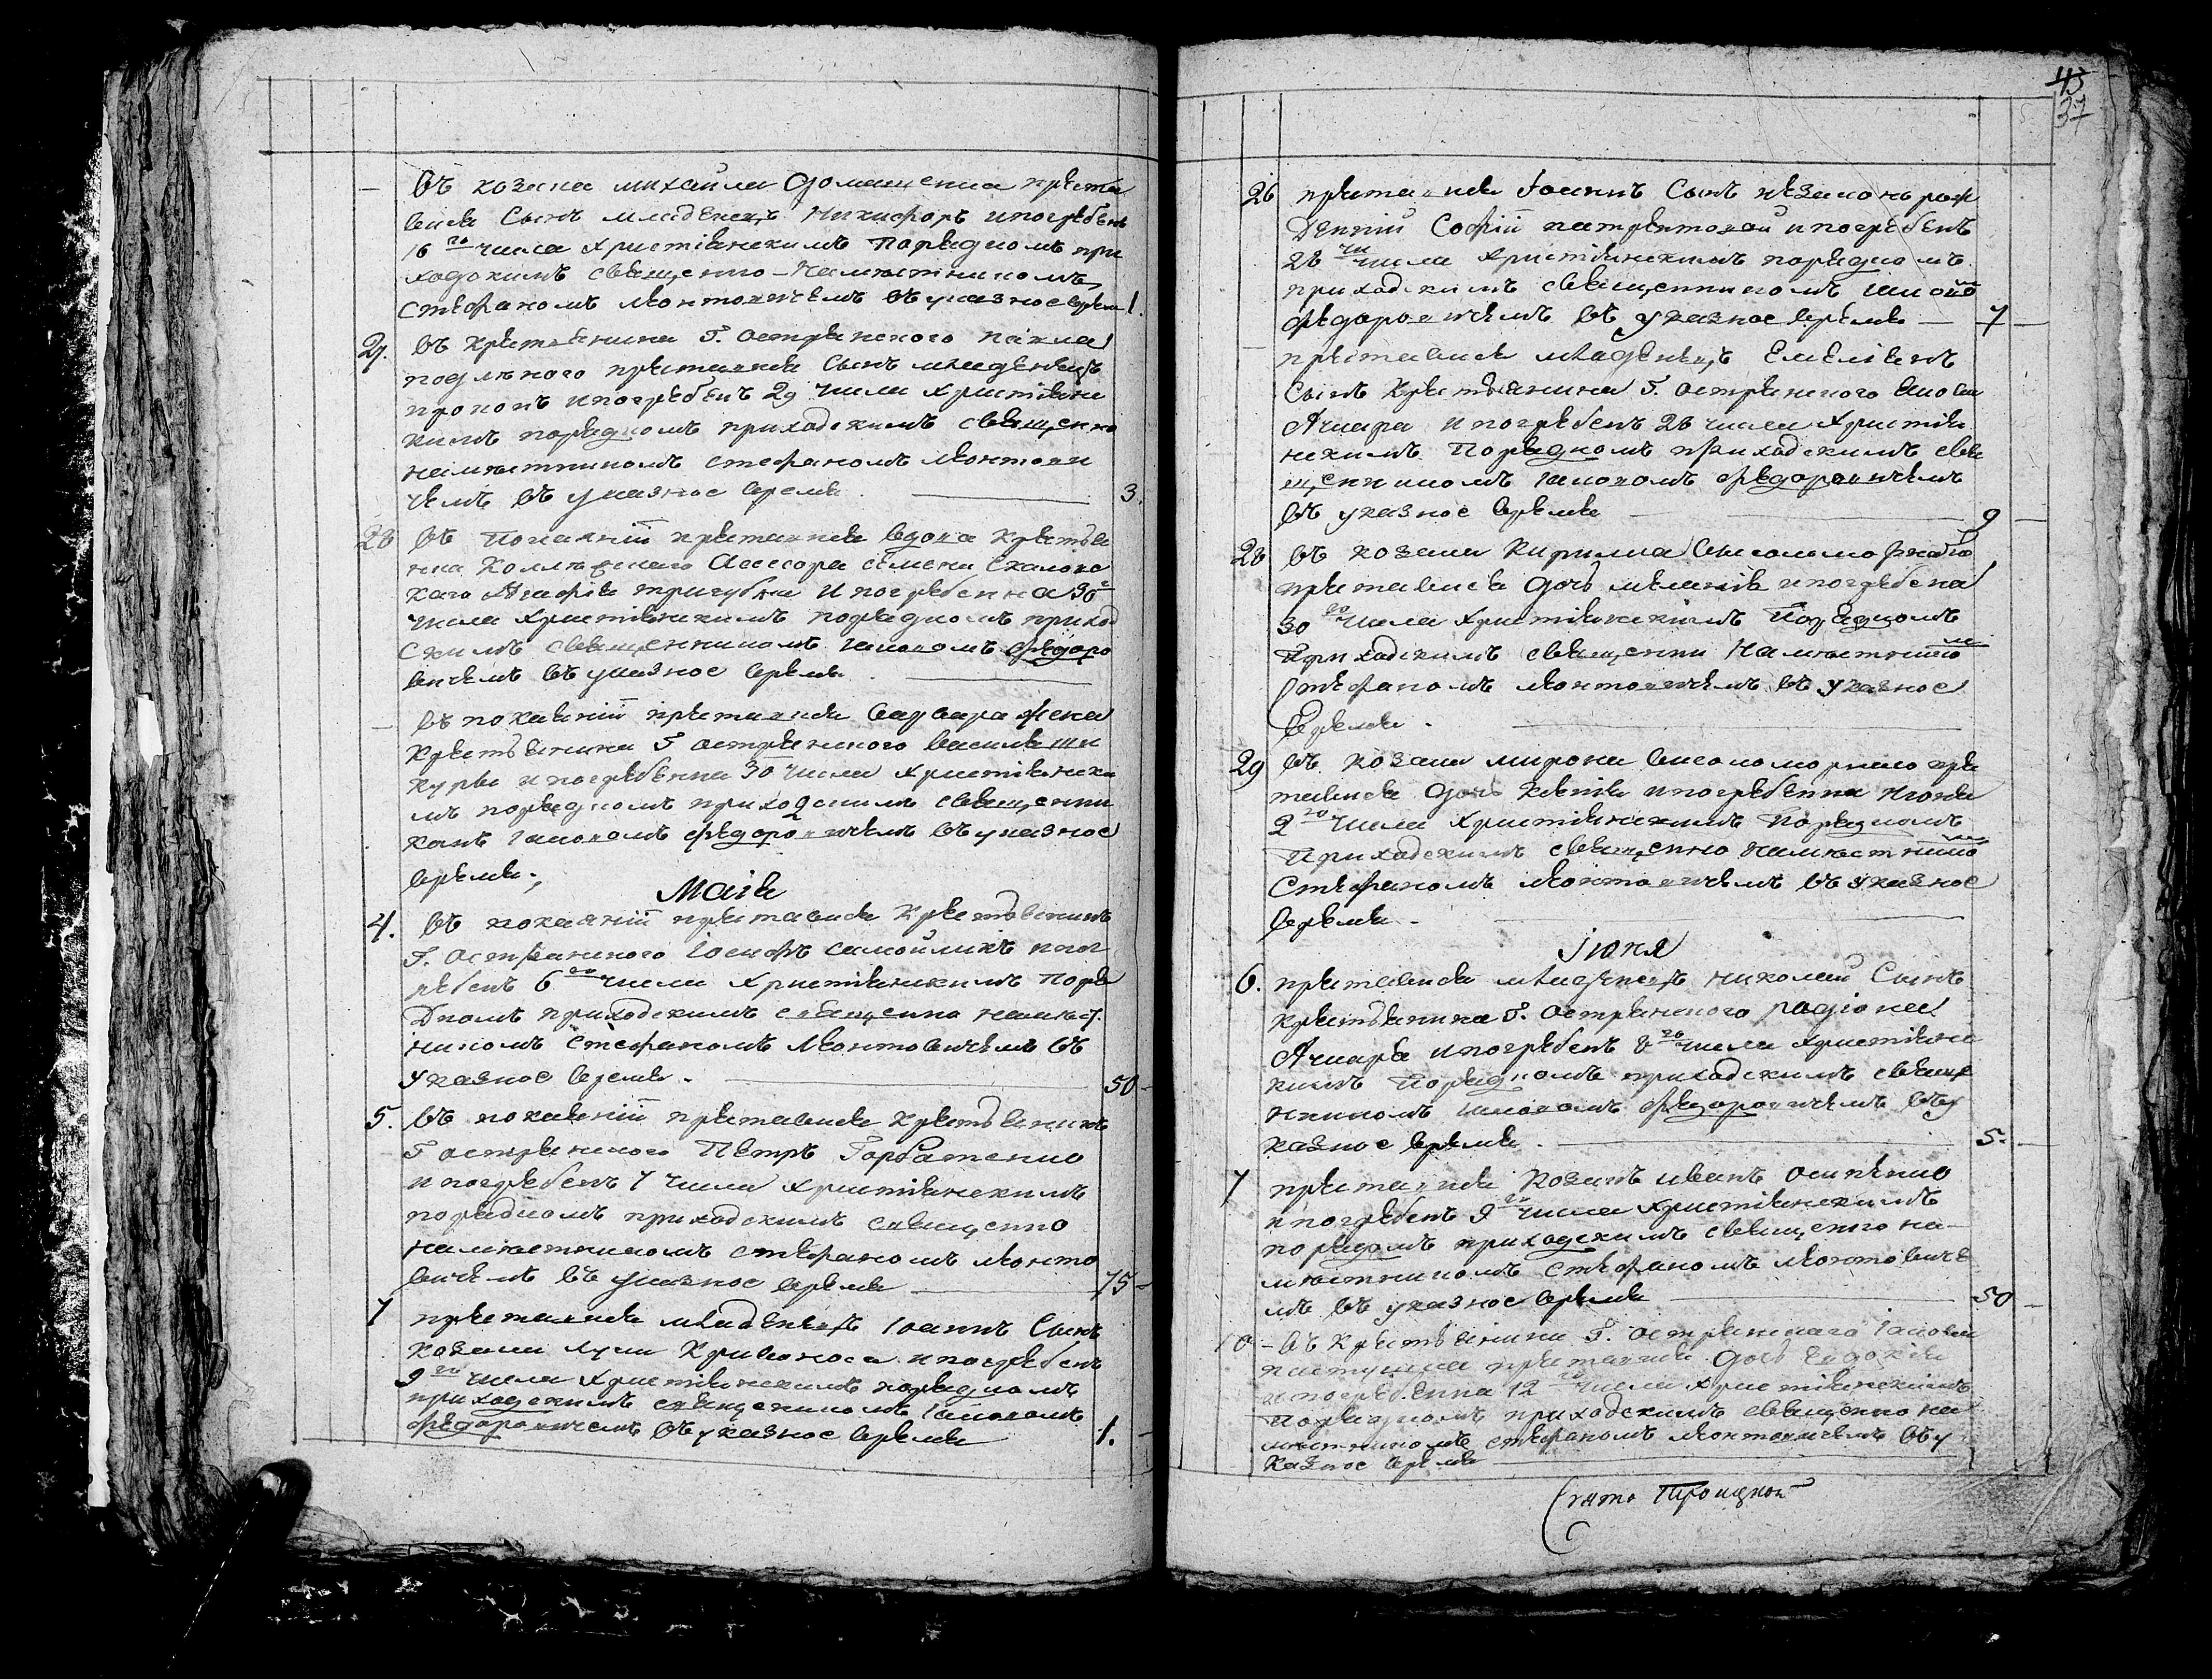 43
37
— въ козака михайла Домащенка преста
вися Сынъ младенецъ Никифоръ и погребенъ
16 го числа христіянскимъ Порядкомъ при
ходскимъ священно-намѣстникомъ
Стефаномъ Монтовичемъ въ указное время 1.
27. въ крестьянина Г. остранского
престався Сынъ младенецъ
Прокопъ и погребенъ 29 числа христіянс
кимъ порядкомъ приходскимъ священно
намѣстникомъ стефаномъ монтови
чемъ въ указное время. — 3.
28 въ Покаяніи престався вдова крестья
нка Коллежскаго Асессора семена
Агафія и погребенна 30 г
числа христіянскимъ порядкомъ приход
скимъ священникомъ Іаковомъ Федоро
вичемъ въ указное время. —
— въ покаяніи престався варвара жена
крестьянина Г остранского василя
и погребенна 30 числа христіянски
мъ порядкомъ приходскимъ священни
комъ Іаковомъ федоровичемъ въ указное
время.
Маія
4. въ покаяніи преставися Крестьянинъ
Г. Остранского Іосифъ самойликъ и пог
ребенъ 6 го числа христіянскимъ Поря
Дкомъ приходскимъ священно намѣст.
никомъ Стефаномъ Монтовичемъ въ
указное время. — 50 —
5. въ покаяніи преставися Крестьянинъ
Г остранского Петръ Горбатенко
и погребенъ 7 числа христіянскимъ
порядкомъ приходскимъ священно
намѣстникомъ стефаномъ монто
вичемъ въ указное время — 75 —
7 престався младенецъ Іоаннъ Сынъ
козака луки Кривоноса и погребенъ
9 го числа христіянскимъ порядкомъ
приходскимъ священникомъ Іаковомъ
федоровичемъ въ указное время 1. —
26 престався Іоаннъ Сынъ незаконъ рож
Денній Софіи и погребенъ
28 числа христіянскимъ порядкомъ
приходскимъ священникомъ Іаково
федоровичемъ въ указное время — 7 —
— преставися младенецъ Емеліянъ
Сынъ Крестьянина Г. остранского
и погребенъ 28 числа христія
нскимъ Порядкомъ приходскимъ свя
щенникомъ Іаковомъ федоровичемъ
въ указное время — 9 —
28 въ козака Кирилла
преставися дочь меланія и погребена
30 го числа христіянскимъ Порядкомъ
Приходскимъ священни Намѣстнико мъ
Стефаномъ монтовичемъ въ указное
время. —
29 въ козака мирона пре
ставися дочь Ксенія и погребенна Июня
2 го числа христіянскимъ Порядкомъ
Приходскимъ священно намѣстнико мъ
Стефаномъ монтовичемъ въ указное
время —
Іюня
6. преставися младенецъ николай Сынъ
крестьянина Г. Остранского Радіона
и погребенъ 8 го числа христіянс
кимъ Порядкомъ приходскимъ священ
никомъ Іаковомъ федоровичемъ въ у
казное время. — 5. —
7 престався козакъ иванъ Осипенко
и погребенъ 9 го числа христіянскимъ
порядомъ приходскимъ священно на-
мѣстникомъ Стефаномъ монтовиче
мъ въ указное время — 50 —
10 — въ Крестьянина Г. остранскаго Іакова
престався дочь Евдокія
и погребенна 12 го числа христіянскимъ
Порядкомъ приходскимъ священно на
мѣстникомъ стефаномъ монтовичемъ въ у
казное время — 1
Свято Троицкой